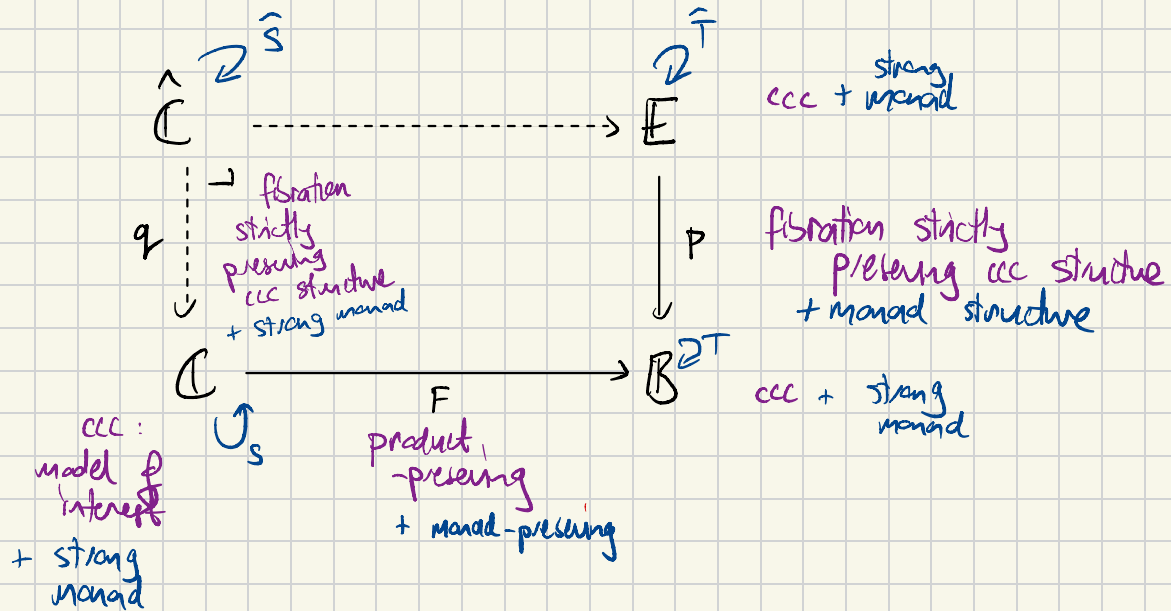 Ŝ
T̂
strong
ccc + monad
Ĉ
E
fibration
strictly
preserving
ccc structure
+ strong monad
q
P
fibration strictly
preserving ccc structure
+ monad structure
C
B
T
F
S
ccc + strong
monad
ccc :
model of
interest
+ strong
monad
product
-preserving
+ monad-preserving